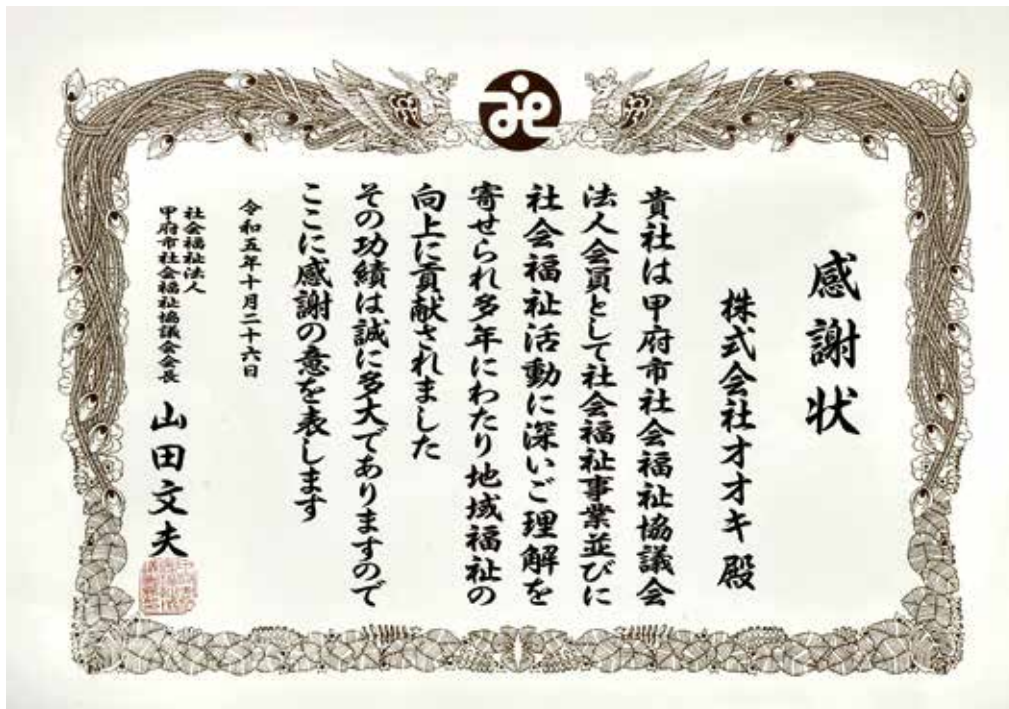 感謝状
株式会社オオキ殿
貴社は甲府市社会福祉協議会
法人会員として社会福祉事業並びに
社会福祉活動に深いご理解を
寄せられ多年にわたり地域福祉の
向上に貢献されました
その功績は誠に多大でありますので
ここに感謝の意を表します
令和五年十月二十六日
社会福祉法人
甲府市社会福祉協議会会長
山田文夫